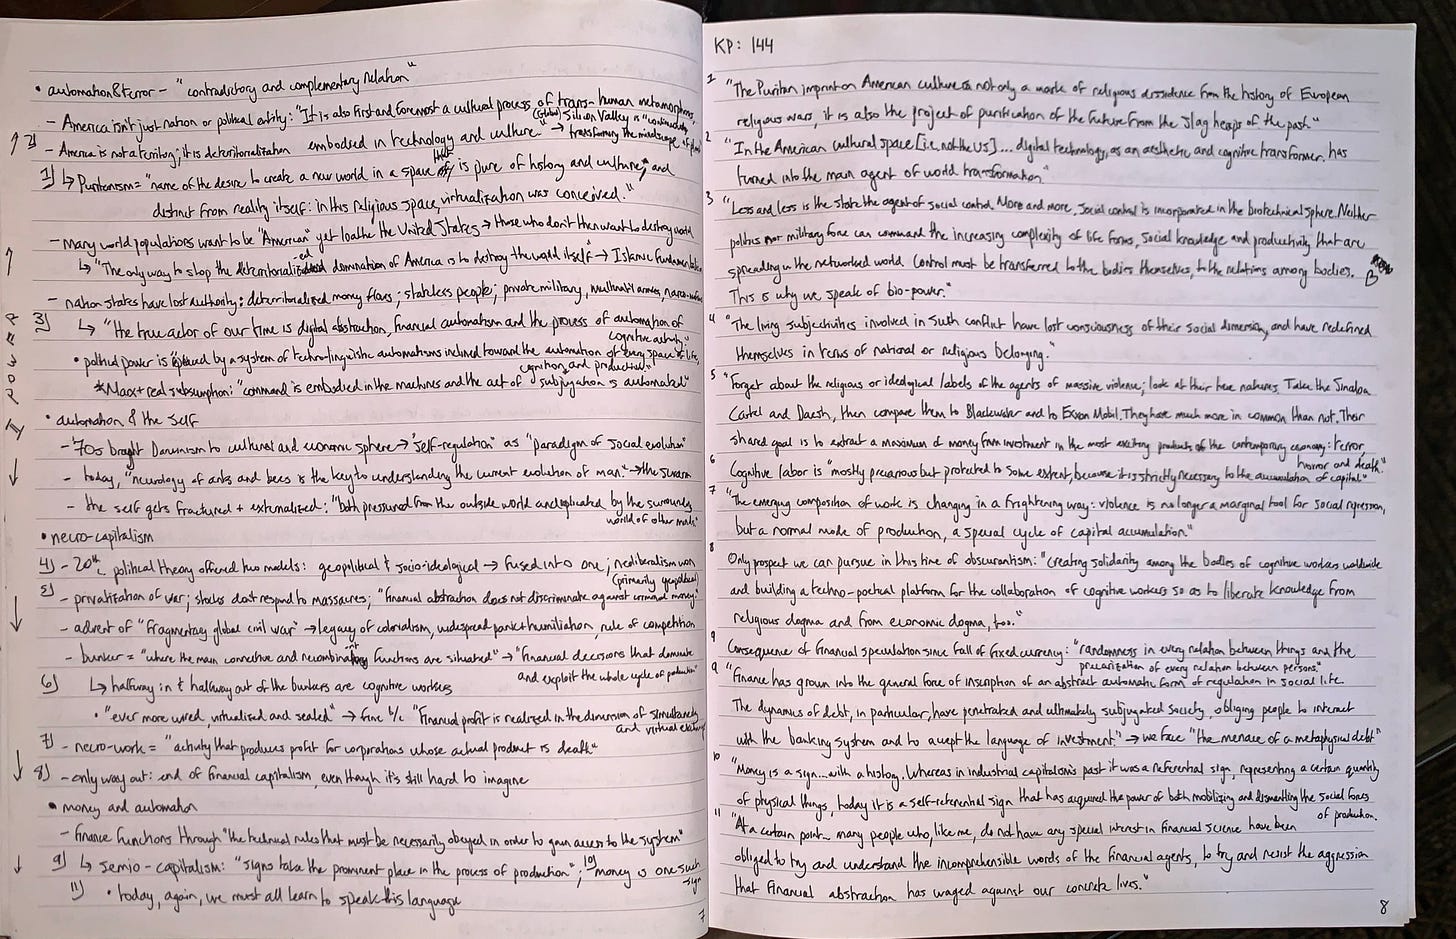 • automation & terror - "contradictory and complementary relation"
- America isn't just nation or political entity: "It is also first and foremost a cultural process of trans-human metamorphosis,
(Global) Silicon Valley is "continuously
2) - America is not a territory; it is deterritorialization embodied in technology and culture" → transforming the mindscape of
1) ↳ Puritanism = "name of the desire to create a new world in a space that is pure of history and culture, and
distinct from reality itself: in this religious space, virtualization was conceived."
- Many world populations want to be "American" yet loathe the United States → those who don't then want to destroy world
↳ "The only way to stop the deterritorialized domination of America is to destroy the world itself" → Islamic fundamentalism
- nation states have lost authority: deterritorialized money flows; stateless people; private military,
3) ↳ "the true actor of our time is digital abstraction, financial automatism and the process of automation of
cognitive activity"
• political power is replaced by a system of techno-linguistic automatisms inclined toward the automation of every space of life,
cognition and production"
*Marx + real subsumption: "command is embodied in the machines and the act of subjugation is automated"
• automation & the self
- 70s brought Darwinism to cultural and economic sphere → "self-regulation" as "paradigm of social evolution"
- today, "neurology of ants and bees is the key to understanding the current evolution of man" → the swarm
- the self gets fractured + externalized: "both pressured from the outside world and replicated by the surrounding
world of other minds"
• necro-capitalism
4) - 20th c. political theory offered two models: geopolitical & socio-ideological → fused into one; neoliberalism won
(primarily geopolitical)
5) - privatization of war; stocks don't respond to massacres; "financial abstraction does not discriminate against criminal money"
- advent of "fragmentary global civil war" → legacy of colonialism, widespread panic + humiliation, rule of competition
- bunker = "where the main connective and recombinant functions are situated" → "financial decisions that dominate
and exploit the whole cycle of production"
6) ↳ halfway in & halfway out of the bunkers are cognitive workers
• "ever more wired, virtualised and sealed" → fine b/c "financial profit is realized in the dimension of simultaneity
and virtual exchange
7) - necro-work = "activity that produces profit for corporations whose actual product is death"
8) - only way out: end of financial capitalism, even though it's still hard to imagine
• money and automation
- finance functions through "the technical rules that must be necessarily obeyed in order to gain access to the system"
9) ↳ semio-capitalism: "signs take the prominent place in the process of production"; 10) money is one such
sign
11) • today, again, we must all learn to speak this language
7
KP: 144
1 "The Puritan imprint on American culture is not only a mark of religious dissidence from the history of European
religious wars, it is also the project of purification of the future from the slag heaps of the past"
2 "In the American cultural space [i.e, not the US]... digital technology, as an aesthetic and cognitive transformer, has
turned into the main agent of world transformation."
3 "Less and less is the state the agent of social control. More and more, social control is incorporated in the biotechnical sphere. Neither
politics nor military force can command the increasing complexity of life forms, social knowledge and productivity that are
spreading in the networked world. Control must be transferred to the bodies themselves, to the relations among bodies.
This is why we speak of bio-power."
4 "The living subjectivities involved in such conflict have lost consciousness of their social dimension, and have redefined
themselves in terms of national or religious belonging."
5 "Forget about the religious or ideological labels of the agents of massive violence; look at their true natures. Take the Sinaloa
Cartel and Daesh, then compare them to Blackwater and to Exxon Mobil. They have much more in common than not. Their
shared goal is to extract a maximum of money from investment in the most exciting products of the contemporary economy: terror,
horror and death."
6 Cognitive labor is "mostly precarious but protected to some extent, because it is strictly necessary to the accumulation of capital"
7 "The emerging composition of work is changing in a frightening way: violence is no longer a marginal tool for social repression,
but a normal mode of production, a special cycle of capital accumulation."
8 Only prospect we can pursue in this time of obscurantism: "creating solidarity among the bodies of cognitive workers worldwide
and building a techno-poetical platform for the collaboration of cognitive workers so as to liberate knowledge from
religious dogma and from economic dogma, too."
9 Consequence of financial speculation since fall of fixed currency: "randomness in every relation between things and the
precarization of every relation between persons."
9 "Finance has grown into the general force of inscription of an abstract automatic form of regulation in social life.
The dynamics of debt, in particular, have penetrated and ultimately subjugated society, obliging people to interact
with the banking system and to accept the language of investment." → we face "the menace of a metaphysical debt"
10 "Money is a sign... with a history. Whereas in industrial capitalism's past it was a referential sign, representing a certain quantity
of physical things, today it is a self-referential sign that has acquired the power of both mobilizing and dismantling the social forces
of production.
11 "At a certain point many people who, like me, do not have any special interest in financial science have been
obliged to try and understand the incomprehensible words of the financial agents, to try and resist the aggression
that financial abstraction has waged against our concrete lives."
8